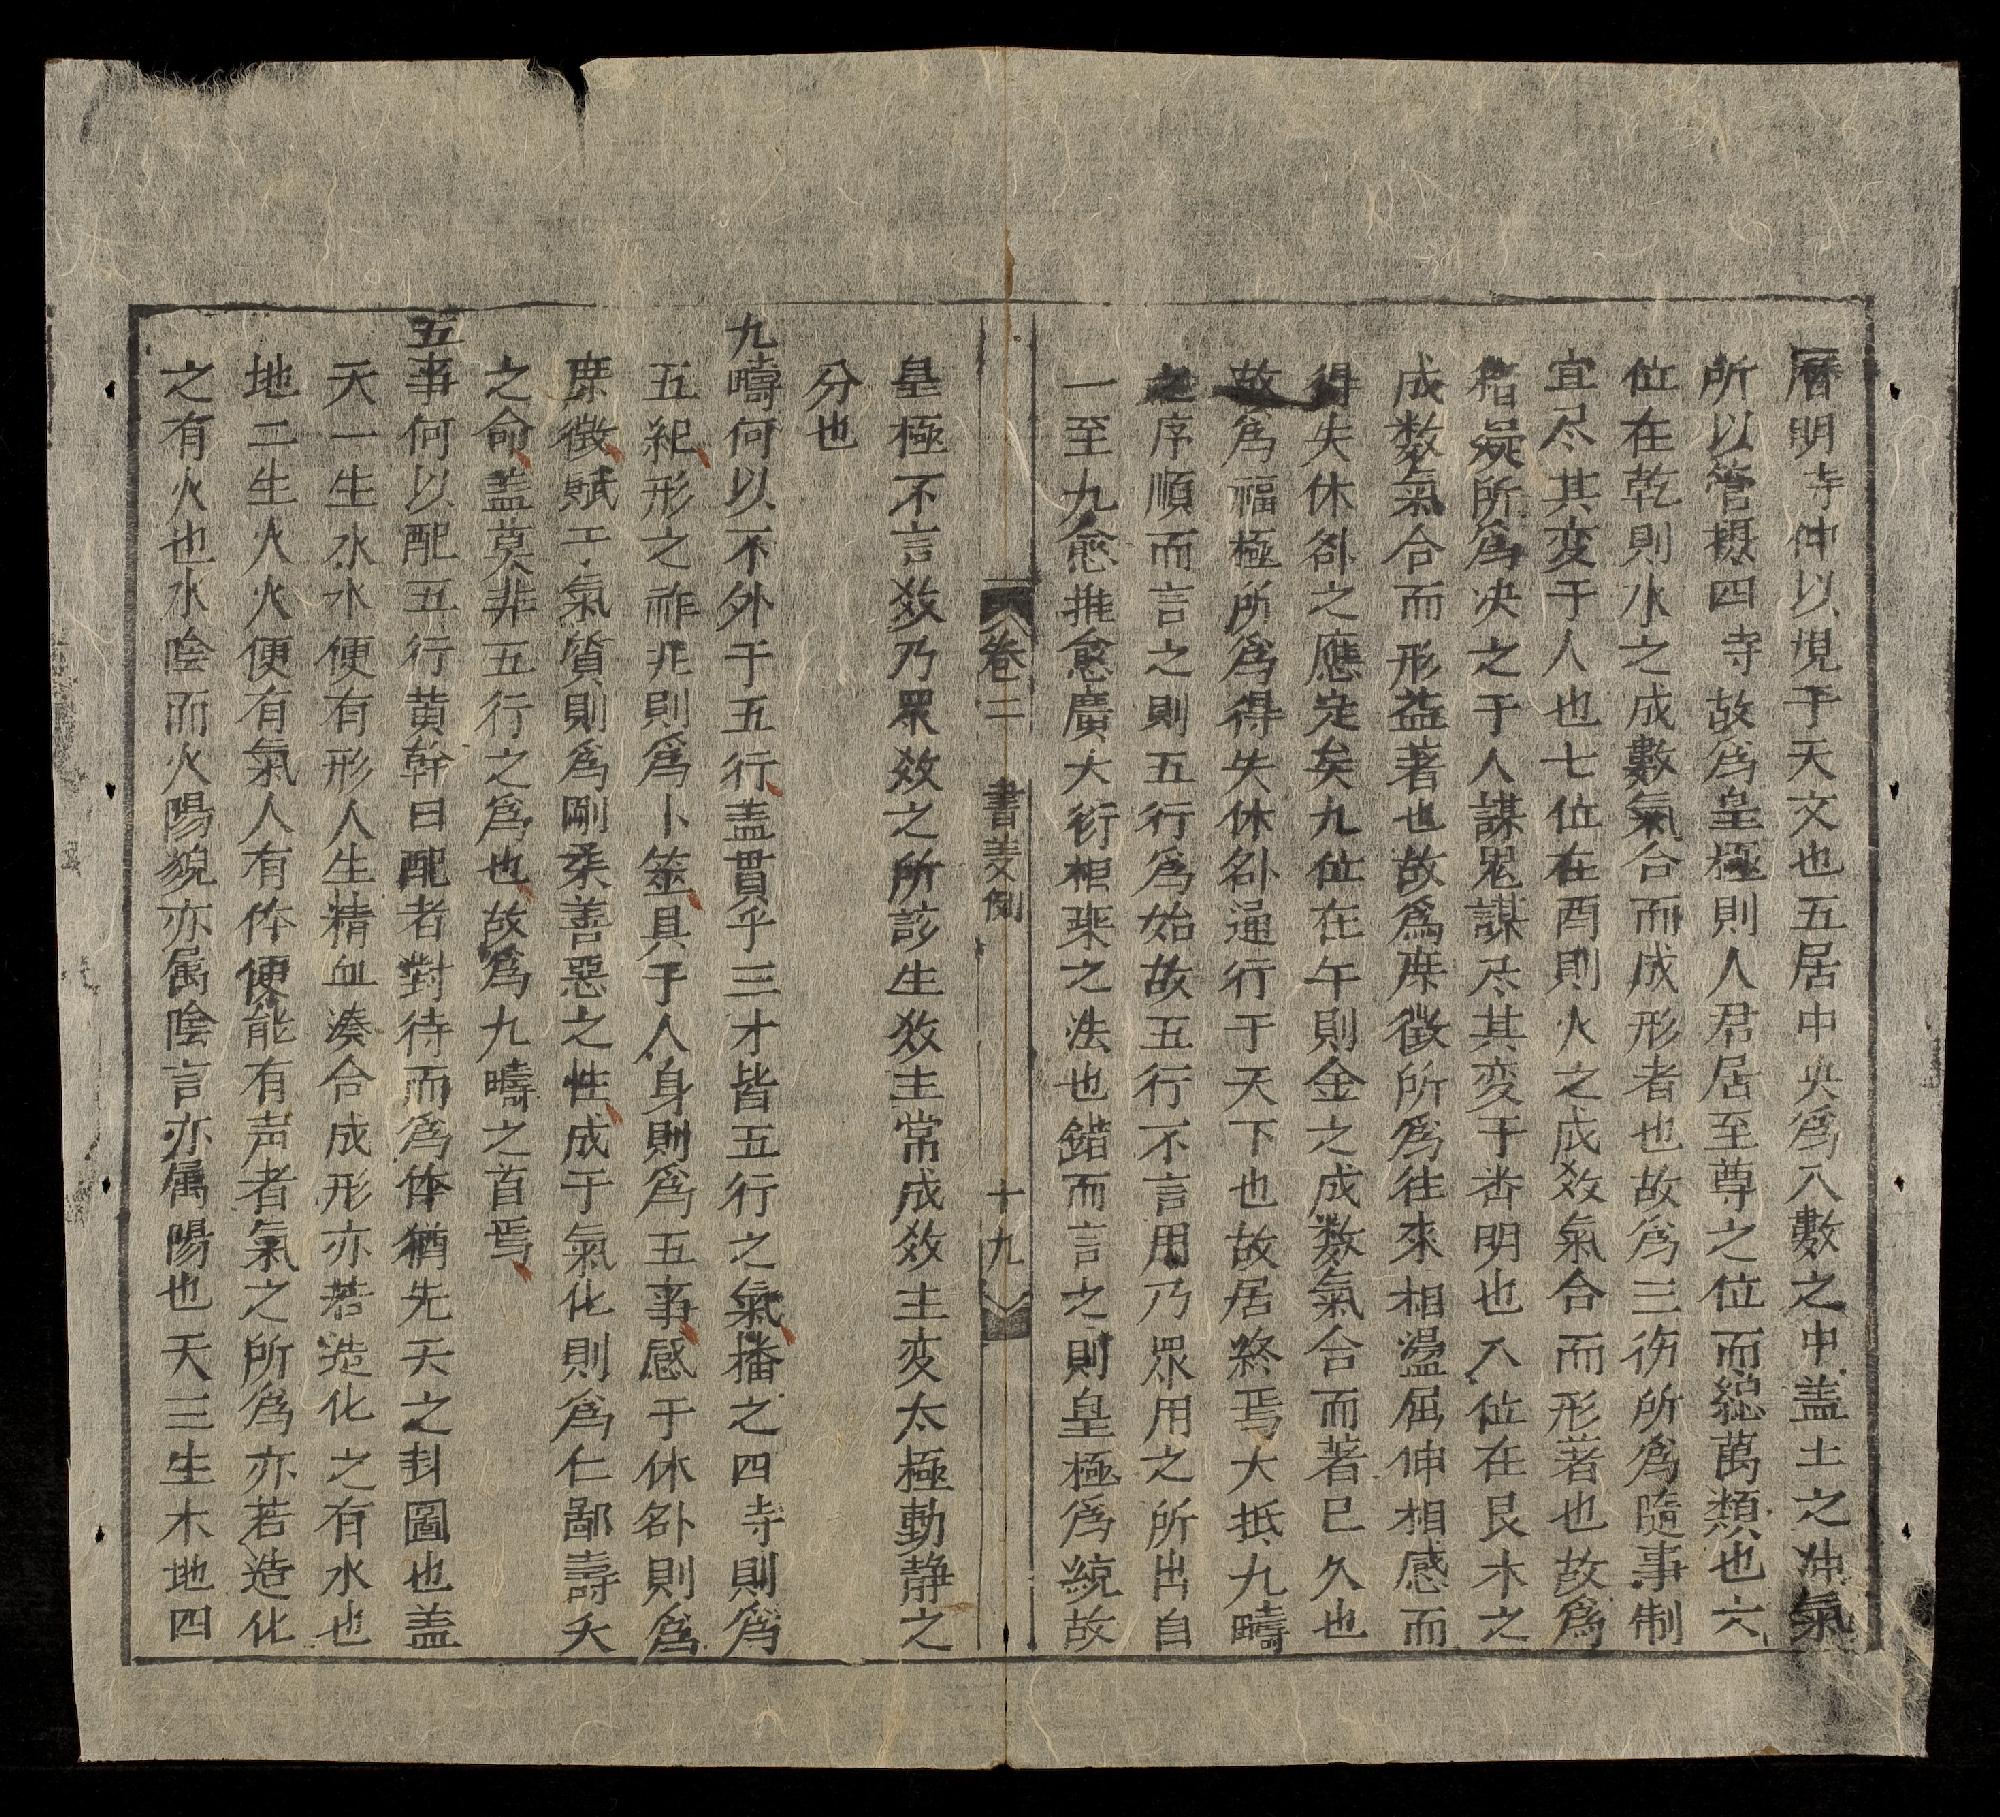 曆明寺仲以現于天文也五居中央為八數之中盖土之冲氣
所以管摂四寺故為皇極則人君居至尊之位而総萬類也六
位在乾則水之成數氣合而成形者也故為三徳所為隨事制
宜尽其変于人也七位在酉則火之成效氣合而形著也故為
稽疑所為决之于人謀鬼謀尽其変于峕明也八位在艮木之
成数氣合而形益著也故為庶徵所為往來相盪屈伸相感而
得失休咎之應定矣九位在午則金之成数氣合而著已久也
故為福極所為得失休咎通行于天下也故居終焉大抵九疇
之序順而言之則五行為始故五行不言用乃眾用之所出自
一至九愈推愈廣大衍相乗之法也錯而言之則皇極為統故
卷二 書羙例 十九
皇極不言效乃眾效之所該生效主常成效主变太極動静之
分也
九疇何以不外于五行盖貫乎三才皆五行之氣播之四寺則為
五紀形之祚兆則為卜筮具于人身則為五事感于休咎則為
庶徵賦工氣質則為剛柔善惡之性成于氣化則為仁鄙壽夭
之命盖莫非五行之為也故為九疇之首焉
五事何以配五行黄幹曰配者對待而為体猶先天之卦圖也盖
天一生水水便有形人生精血凑合成形亦若造化之有水也
地二生火火便有氣人有体便能有声者氣之所為亦若造化
之有火也水陰而火陽貌亦属陰言亦属陽也天三生木地四